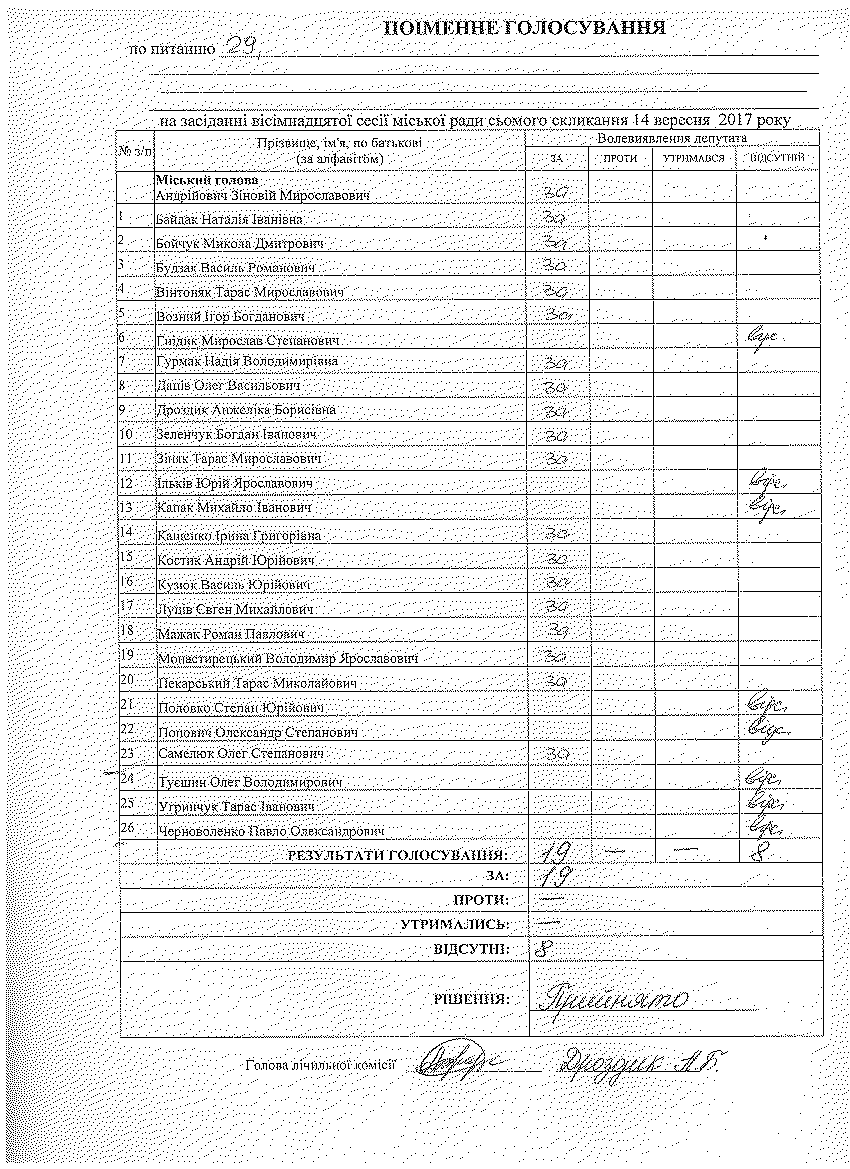 ПОІМЕННЕ ГОЛОСУВАННЯ
по питанню 29,
на засіданні вісімнадцятої сесії міської ради сьомого скликання 14 вересня 2017 року
№ з/п Прізвище, ім'я, по батькові (за алфавітом) Волевиявлення депутата
ЗА ПРОТИ УТРИМАВСЯ ВІДСУТНІЙ
Міський голова
Андрійович Зіновій Мирославович за
1 Байдак Наталія Іванівна за
2 Бойчук Микола Дмитрович за
3 Будзак Василь Романович за
4 Вінтоняк Тарас Мирославович за
5 Возний Ігор Богданович за
6 Гнідик Мирослав Степанович відс.
7 Гурмак Надія Володимирівна за
8 Даців Олег Васильович за
9 Дроздик Анжеліка Борисівна за
10 Зеленчук Богдан Іванович за
11 Зіняк Тарас Мирославович за
12 Ільків Юрій Ярославович відс.
13 Капак Михайло Іванович відс.
14 Кащенко Ірина Григорівна за
15 Костик Андрій Юрійович за
16 Кузюк Василь Юрійович за
17 Луців Євген Михайлович за
18 Мажак Роман Павлович за
19 Монастирецький Володимир Ярославович за
20 Пекарський Тарас Миколайович за
21 Половко Степан Юрійович відс.
22 Попович Олександр Степанович відс.
23 Самелюк Олег Степанович за
24 Туєшин Олег Володимирович відс.
25 Угринчук Тарас Іванович відс.
26 Черноволенко Павло Олександрович відс.
РЕЗУЛЬТАТИ ГОЛОСУВАННЯ: 19 — — 8
ЗА: 19
ПРОТИ: —
УТРИМАЛИСЬ: —
ВІДСУТНІ: 8
РІШЕННЯ: Прийнято
Голова лічильної комісії Дроздик А.Б.